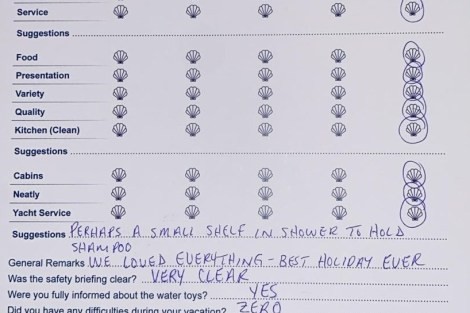 Service
Suggestions
Food
Presentation
Variety
Quality
Kitchen (Clean)
Suggestions
Cabins
Neatly
Yacht Service
Suggestions PERHAPS A SMALL SHELF IN SHOWER TO HOLD
SHAMPOO
General Remarks WE LOVED EVERYTHING - BEST HOLIDAY EVER
Was the safety briefing clear? VERY CLEAR
Were you fully informed about the water toys? YES
Did you have any difficulties during your vacation? ZERO